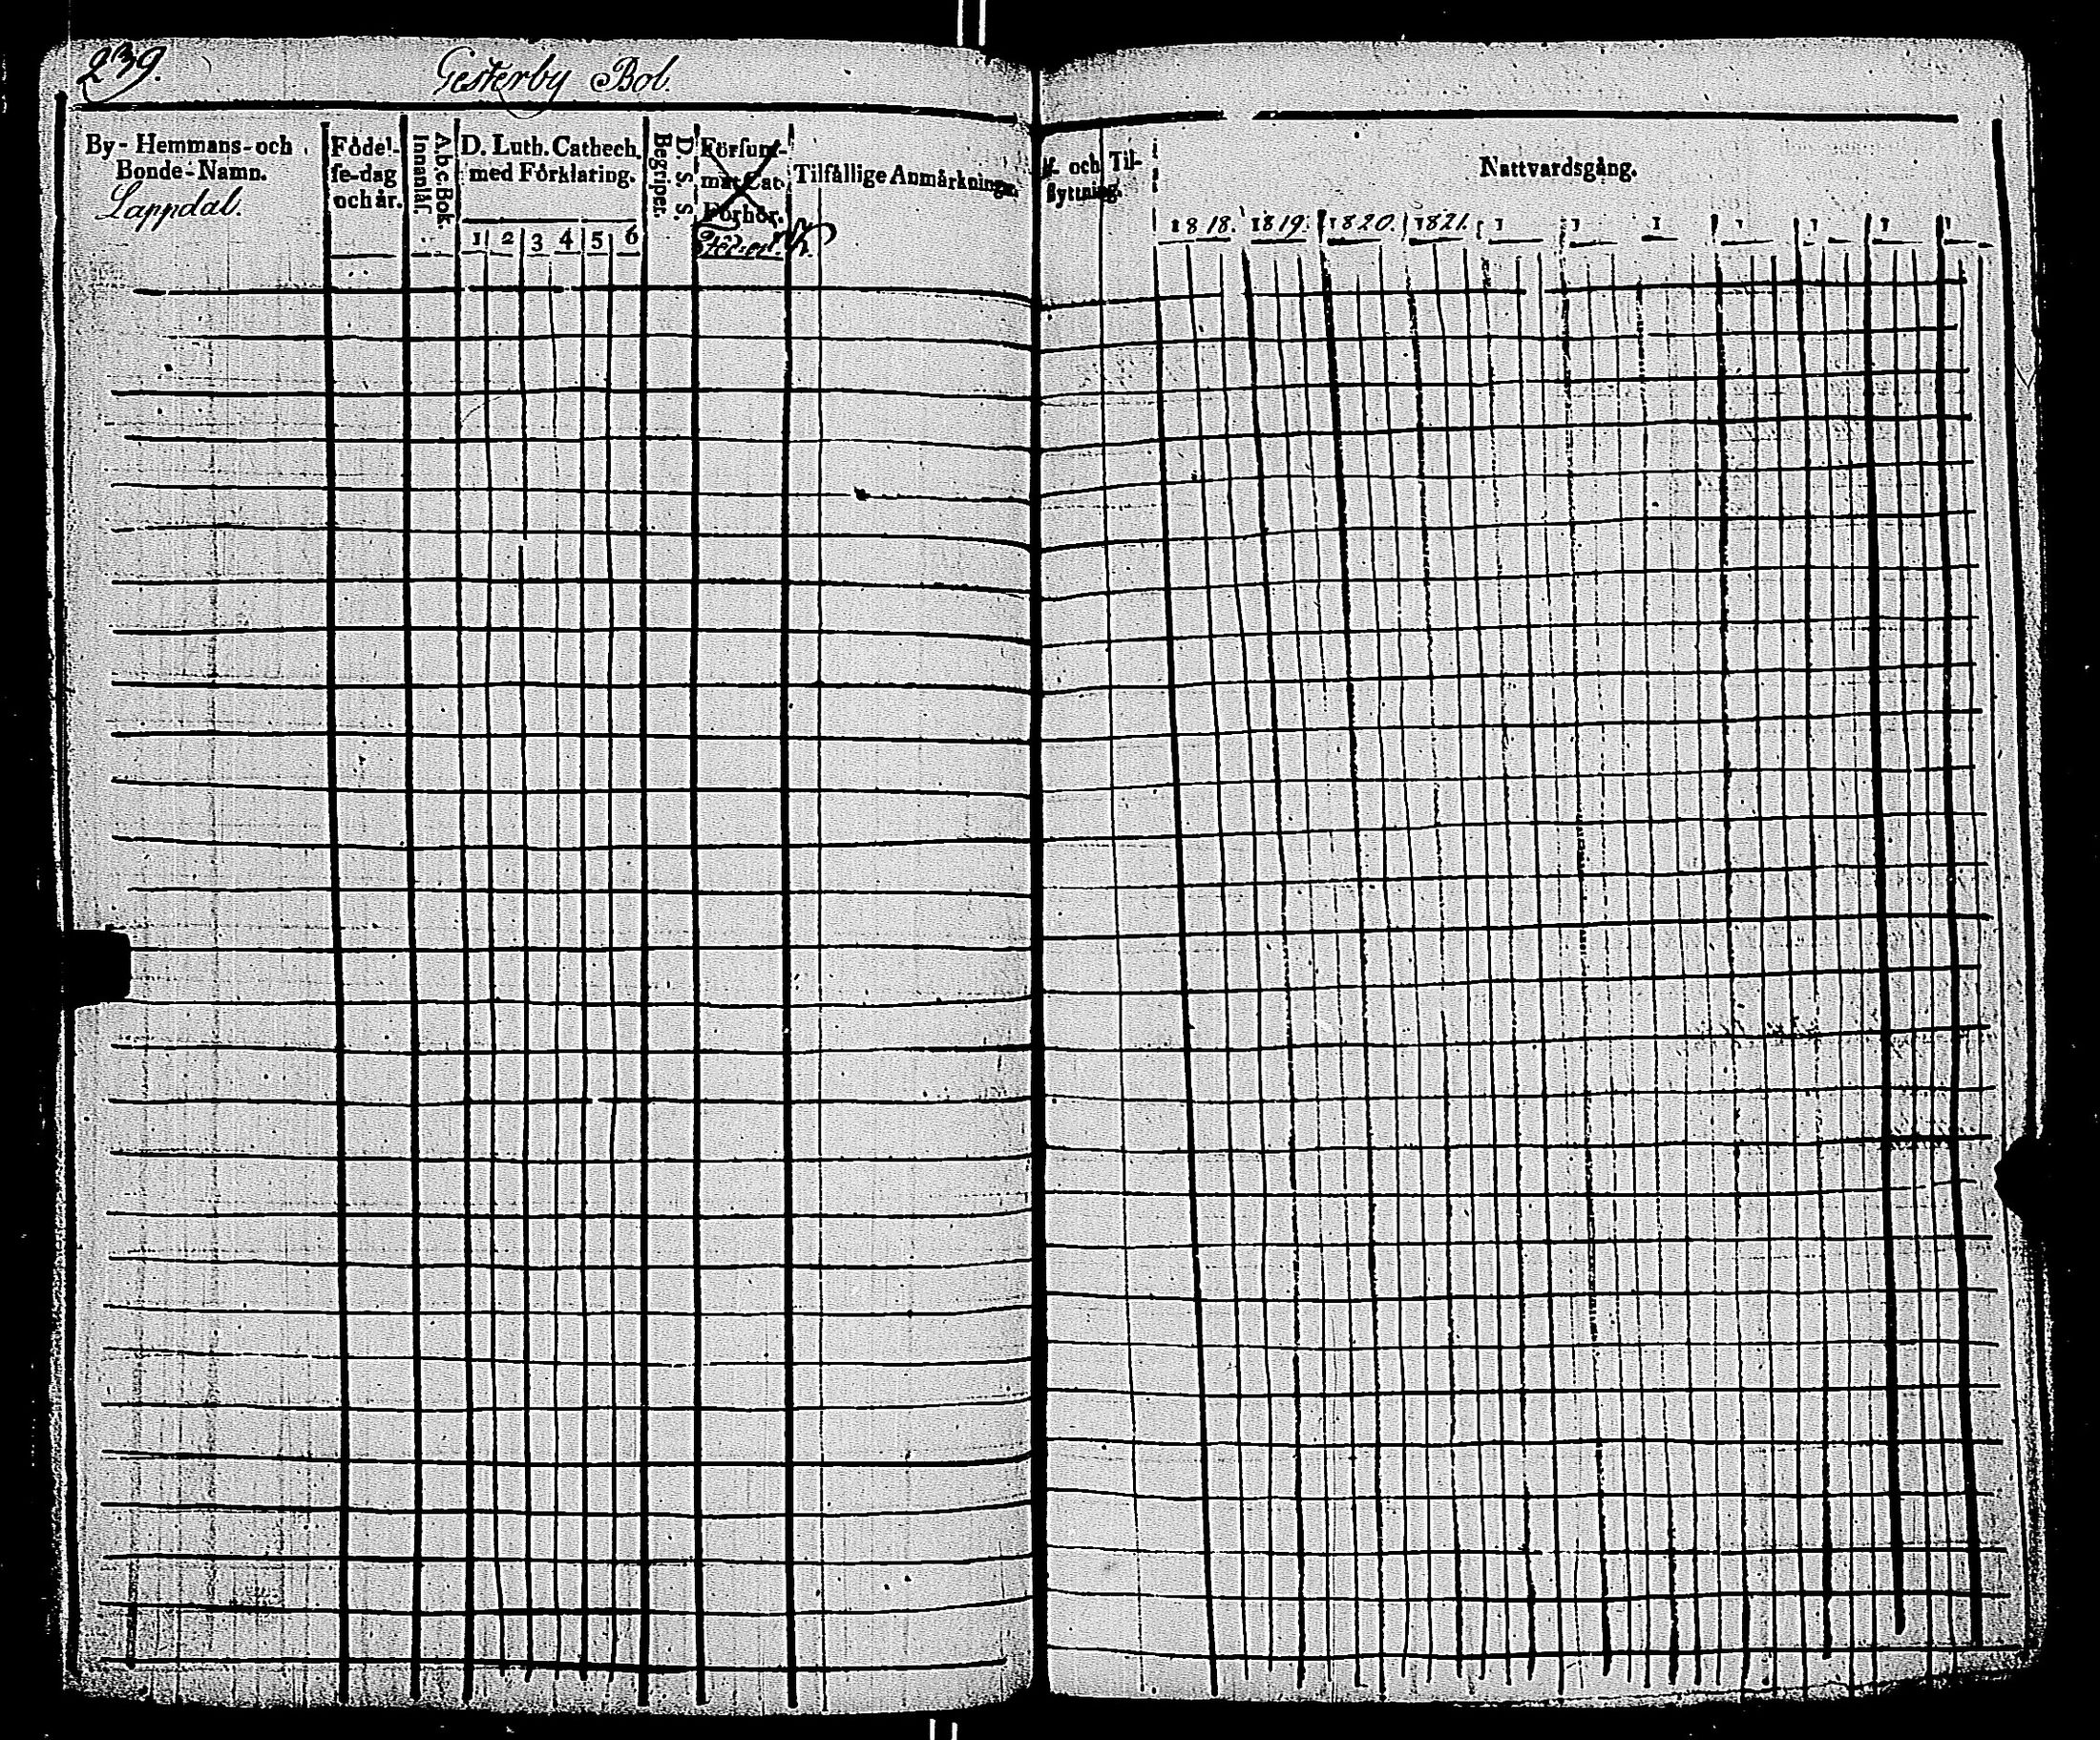 239.
Gesterby Bol.
By-Hemmans-och
Bonde-Namn.
Lappdal.
Födel-
se-dag
och år.
A.b.c Bok.
Innanläs.
D. Luth. Cathech.
med Förklaring.
1 2 3 4 5 6
D. S. S.
Begriper.
Försum-
mat Cat.
Förhör.
Tilfällige Anmärkningar.
f- och Til-
flyttning.
Nattvardsgång.
1818. 1819. 1820. 1821. 1 1 1 1 1 1 1